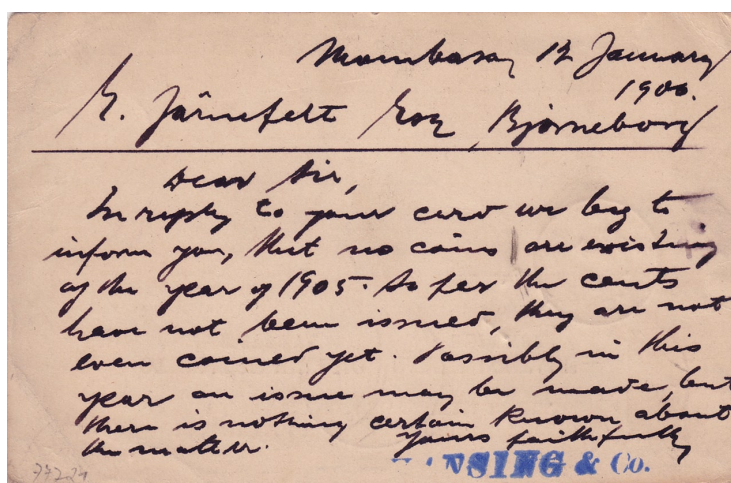 Mombasa, 12 January
1906.
E. Järnefelt Esq, Björneborg
Dear Sir,
In reply to your card we beg to
inform you, that no coins are existing
of the year of 1905. So far the cents
have not been issued, they are not
even coined yet. Possibly in this
year an issue may be made, but
there is nothing certain known about
the matter. Yours faithfully
NSING & Co.